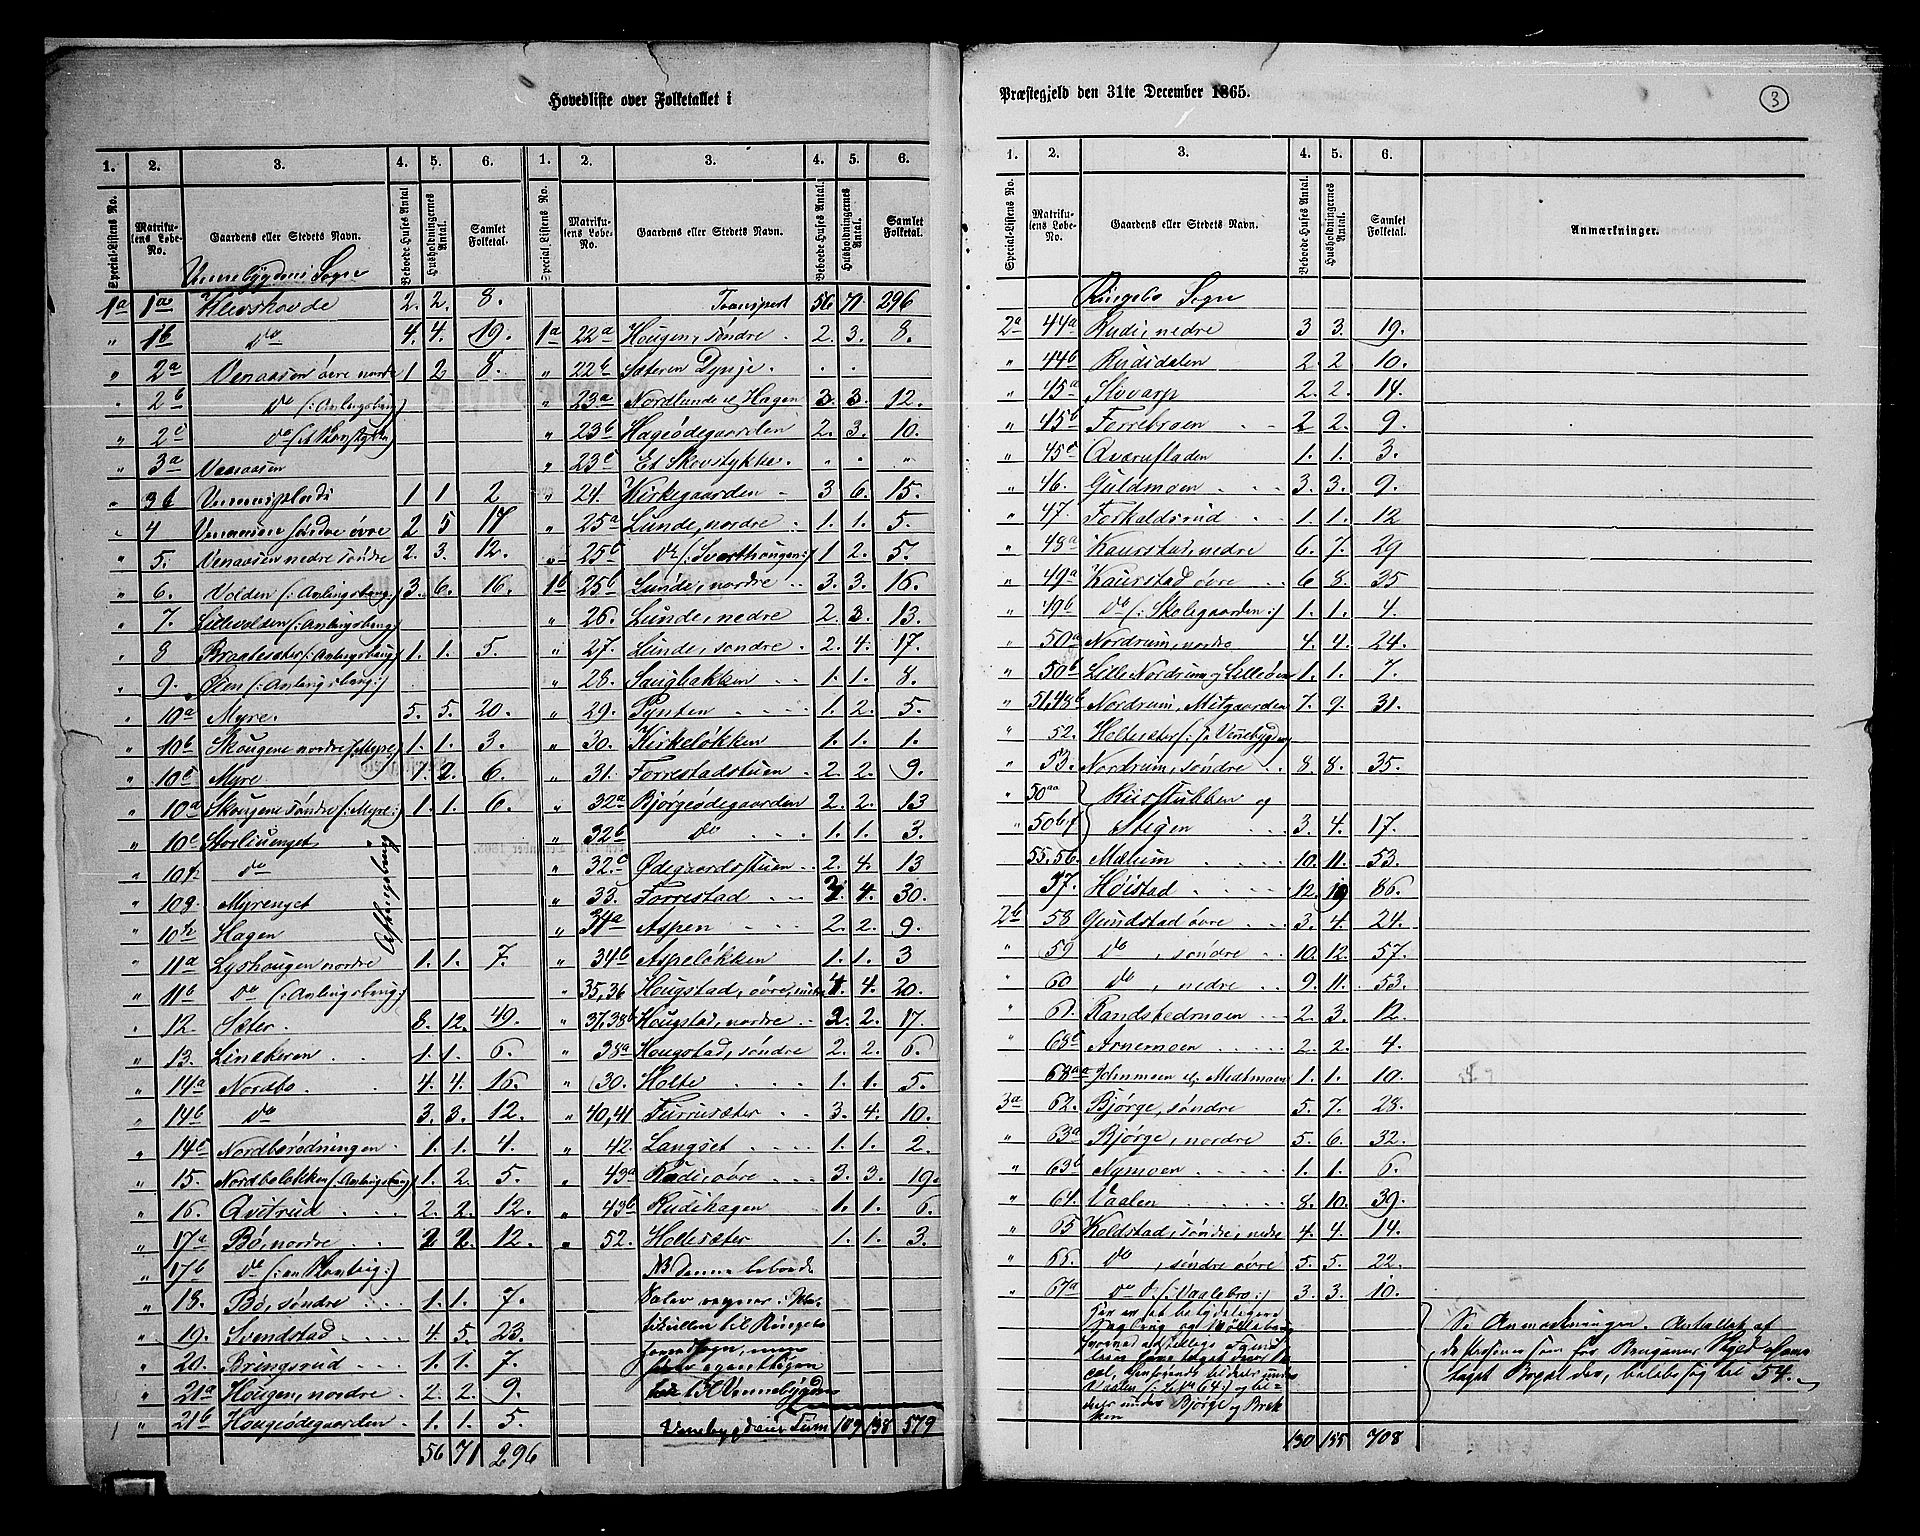 Hovedliste over Folketallet i
Præstegjeld den 31te December 1865.
3
1. 2. 3. 4. 5. 6. 1. 2. 3. 4. 5. 6.
Special-Listens No. Matrikulens Løbe-No. Gaardens eller Stedets Navn. Beboede Huses Antal. Husholdningernes Antal. Samlet Folketal. Special-Listens No. Matrikulens Løbe-No. Gaardens eller Stedets Navn. Beboede Huses Antal. Husholdningernes Antal. Samlet Folketal.
Vennebygdens Sogn
1a 1a Klevshovde 2. 2. 8.
" 1b do 4. 4. 19.
" 2a Venaasen øvre nordre 1 2 8.
" 2b do (: Anlingsberg)
" 2c do
" 3a Venaasen
" 3b 1 1 2
" 4 Venaasen søndre øvre 2 5 17
" 5. Venaasen nedre søndre 2. 3. 12.
" 6. Volden 3. 6. 16.
" 7. Lillevolden
" 8 Braatesæter 1. 1. 5.
" 9. Øien
" 10a Myre. 5. 5. 20.
" 10b Skougene nordre (: Myre) 1. 1. 3.
" 10c Myre 1. 2. 6.
" 10d Skougene søndre (: Myre:) 1. 1. 6.
" 10e Storliuenget
" 10f do
" 10g. Myrenget
" 10h Hagen
" 11a Lyshougen nordre 1. 1. 7.
" 11b do
" 12. Sæter. 8. 12. 49.
" 13. Linekeren 1. 1. 6.
" 14a Nordbo. 4. 4. 16.
" 14b do 3. 3. 12.
" 14c Nordberødningen 1. 1. 4.
" 15. Nordbeløkken 1. 2. 5.
" 16 Qvitrud 2. 2. 12.
" 17a Bø, nordre 2 2. 12.
" 17b do
" 18. Bø, søndre 1. 1. 7.
" 19. Svendstad 4. 5. 23.
" 20. Bringsrud 1. 1. 7.
" 21a Hougen, nordre 2. 2. 9.
" 21b Hougsødegaarden 1. 1. 5.
56 71 296
Transport 56 71 296
1a 22a Hougen, søndre 2. 3. 8.
" 22b Sæteren Dynje . . .
" 23a Nordlunde & Hagen 3. 3. 12.
" 23b Hageødegaarden 2. 3. 10.
" 23c Et Skovstykke. " . "
" 24. Kirkegaarden 3 6. 15.
" 25a Lunde, nordre 1. 1. 5.
" 25c do (: Svarthougen:) 1 2. 5.
1b 25b Lunde, nordre 3. 3. 16.
26. Lunde, nedre 2. 3. 13.
" 27. Lunde, søndre 2. 4. 17.
" 28. Saugbakken 1. 1. 8.
" 29. Pynten 1. 2. 5.
" 30. Kirkeløkken 1. 1. 1.
" 31. Forrestadstuen 2. 2. 9.
" 32a Bjørgeødegaarden 2. 2. 13
" 32b do 1. 1. 3.
" 32c Ødegaardsstuen 2. 4. 13
" 33. Forrestad 4. 30.
" 34a Aspen 2. 2. 9.
" 34b Aspeløkken 1. 1. 3
35, 36 Hougstad, øvre, nedre 4. 4. 20.
" 37, 38b Hougstad, nordre 2. 2. 17.
" 38a Hougstad, søndre 2. 2. 6.
" 30. Holte 1. 1. 5.
" 40, 41 Furrusæter 3. 4. 10.
" 42. Langset 1. 1. 2.
" 43a Rudi, øvre 3. 3. 19.
" 43b Rudihagen 1. 1. 6.
52. Holtesæter 1. 1. 3.
NB Denne beboede
til Ringebo
men
egentligen
til Vennebygden
Venebygdens Sum 109 138 579
1. 2. 3. 4. 5. 6.
Special-Listens No. Matrikulens Løbe-No. Gaardens eller Stedets Navn. Beboede Huses Antal. Husholdningernes Antal. Samlet Folketal. Anmærkninger.
Ringebo Sogn
2a 44a Rudi, nedre 3 3. 19.
" 44b Rudidalen 2. 2 10.
" 45a Slovarp 2. 2. 14.
" 45b Forrebroen 2 2. 9.
" 45c Qværnfladen 1. 1. 3.
" 46. Guldmoen 3. 3. 9.
" 47. Forkaldsrud 1. 1. 12
" 48a Kaurstad, nedre 6. 7. 29
" 49a Kaurstad øvre 6 8. 35
" 49b do (: Skolegaarden:) 1. 1. 4.
" 50a Nordrum, nordre 4. 4. 24.
" 50b Lille Nordrum og Lilleøen 1. 1. 7.
" 51, 48b Nordrum, Mitgaarden 7. 9. 31.
" 52. Holtesæter (: i Vennebygden)
" 53. Nordrum, søndre 8. 8. 35.
" 50aa Kirsstukken og
" 50bf Stigen 3. 4. 17.
55. 56 Mælum 10. 11. 53.
57. Høistad 12. 19 86.
2b 58 Gundstad øvre 3. 4. 24.
" 59 do, søndre 10. 12. 57.
" 60 do, nedre 9. 11. 53.
" 61. Randstedmoen 2. 3. 12.
" 68c Arnemoen 2. 2. 4.
68aa Johnmoen & Midtmoen 1. 1. 10.
3a 62. Bjørge, søndre 5. 7. 28.
" 63a Bjørge, nordre 5. 6. 32.
" 63b Nymoen 1. 1. 6.
" 64. Vaalen 8. 10. 39.
" 65 Koldstad, søndre, nedre 4. 4. 14.
" 66. do, søndre øvre 5. 5. 22.
" 67a do (: Vaalebro:) 3. 3. 10.
Her er et betydeligere
Vaalen (: L. No 64:) og
under Bjørge og Brekken
Anmærkningen. Antallet af
de Personer som
beløb sig til 54.
130 155 708